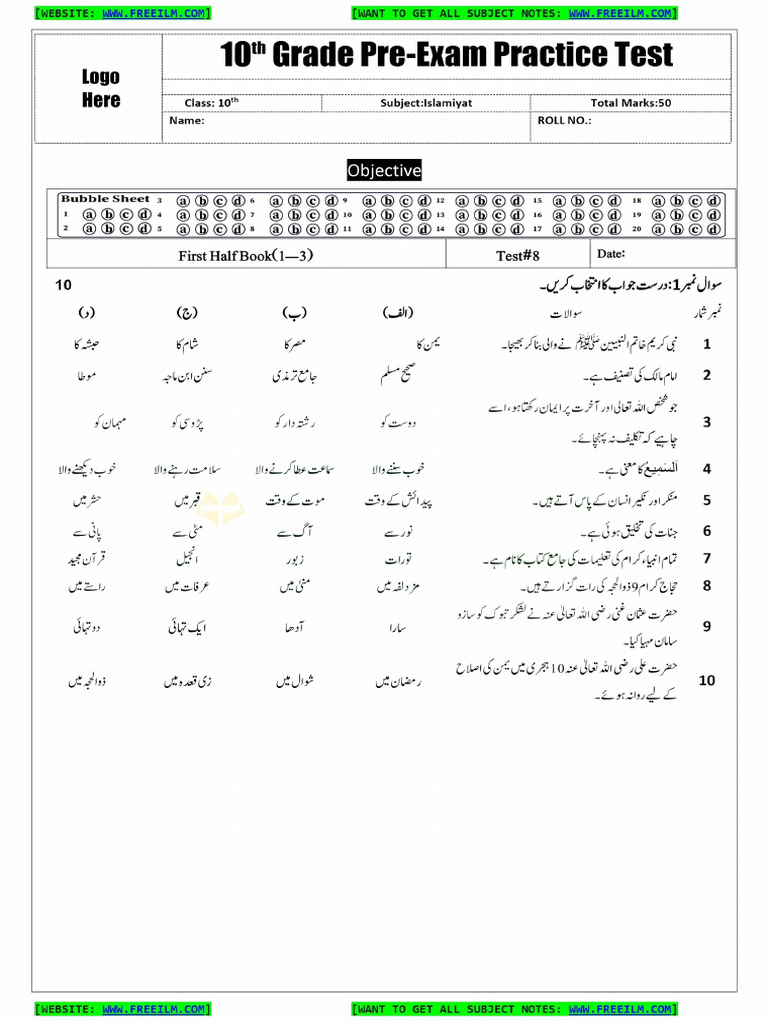 [WEBSITE: WWW.FREEILM.COM] [WANT TO GET ALL SUBJECT NOTES: WWW.FREEILM.COM]
Logo Here
10th Grade Pre-Exam Practice Test
Class: 10th Subject:Islamiyat Total Marks:50
Name: ROLL NO.:
Objective
Bubble Sheet 3 a b c d 6 a b c d 9 a b c d 12 a b c d 15 a b c d 18 a b c d
1 a b c d 4 a b c d 7 a b c d 10 a b c d 13 a b c d 16 a b c d 19 a b c d
2 a b c d 5 a b c d 8 a b c d 11 a b c d 14 a b c d 17 a b c d 20 a b c d
First Half Book(1—3) Test#8 Date:
سوال نمبر 1: درست جواب کا انتخاب کریں۔ 10
نمبر شمار سوالات (الف) (ب) (ج) (د)
1 نبی کریم خاتم النبیین ﷺ نے والی بنا کر بھیجا۔ یمن کا مصر کا شام کا حبشہ کا
2 امام مالک کی تصنیف ہے۔ صحیح مسلم جامع ترمذی سنن ابن ماجہ موطا
3 جو شخص اللہ تعالی اور آخرت پر ایمان رکھتا ہو، اسے
چاہیے کہ تکلیف نہ پہنچائے۔ دوست کو رشتہ دار کو پڑوسی کو مہمان کو
4 اَلسَّمِیعُ کا معنی ہے۔ خوب سننے والا سماعت عطا کرنے والا سلامت رہنے والا خوب دیکھنے والا
5 منکر اور نکیر انسان کے پاس آتے ہیں۔ پیدائش کے وقت موت کے وقت قبر میں حشر میں
6 جنات کی تخلیق ہوئی ہے۔ نور سے آگ سے مٹی سے پانی سے
7 تمام انبیاء کرام کی تعلیمات کی جامع کتاب کا نام ہے۔ تورات زبور انجیل قرآن مجید
8 حجاج کرام 9 ذوالحجہ کی رات گزارتے ہیں۔ مزدلفہ میں منیٰ میں عرفات میں راستے میں
9 حضرت عثمان غنی رضی اللہ تعالیٰ عنہ نے لشکر تبوک کو سازو
سامان مہیا کیا۔ سارا آدھا ایک تہائی دو تہائی
10 حضرت علی رضی اللہ تعالیٰ عنہ 10 ہجری میں یمن کی اصلاح
کے لیے روانہ ہوئے۔ رمضان میں شوال میں زی قعدہ میں ذوالحجہ میں
[WEBSITE: WWW.FREEILM.COM] [WANT TO GET ALL SUBJECT NOTES: WWW.FREEILM.COM]